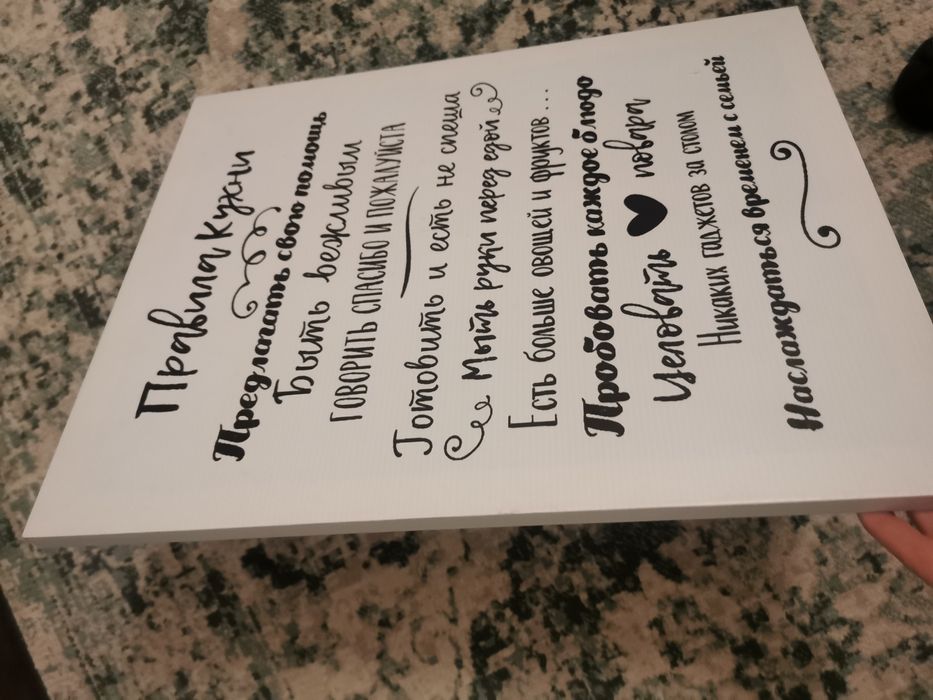 Правила Кухни
Предлагать свою помощь
Быть вежливым
ГОВОРИТЬ СПАСИБО И ПОЖАЛУЙСТА
Готовить и есть не спеша
Мыть руки перед едой
Есть больше овощей и фруктов...
Пробовать каждое блюдо
Целовать повара
Никаких гаджетов за столом
Наслаждаться временем с семьей